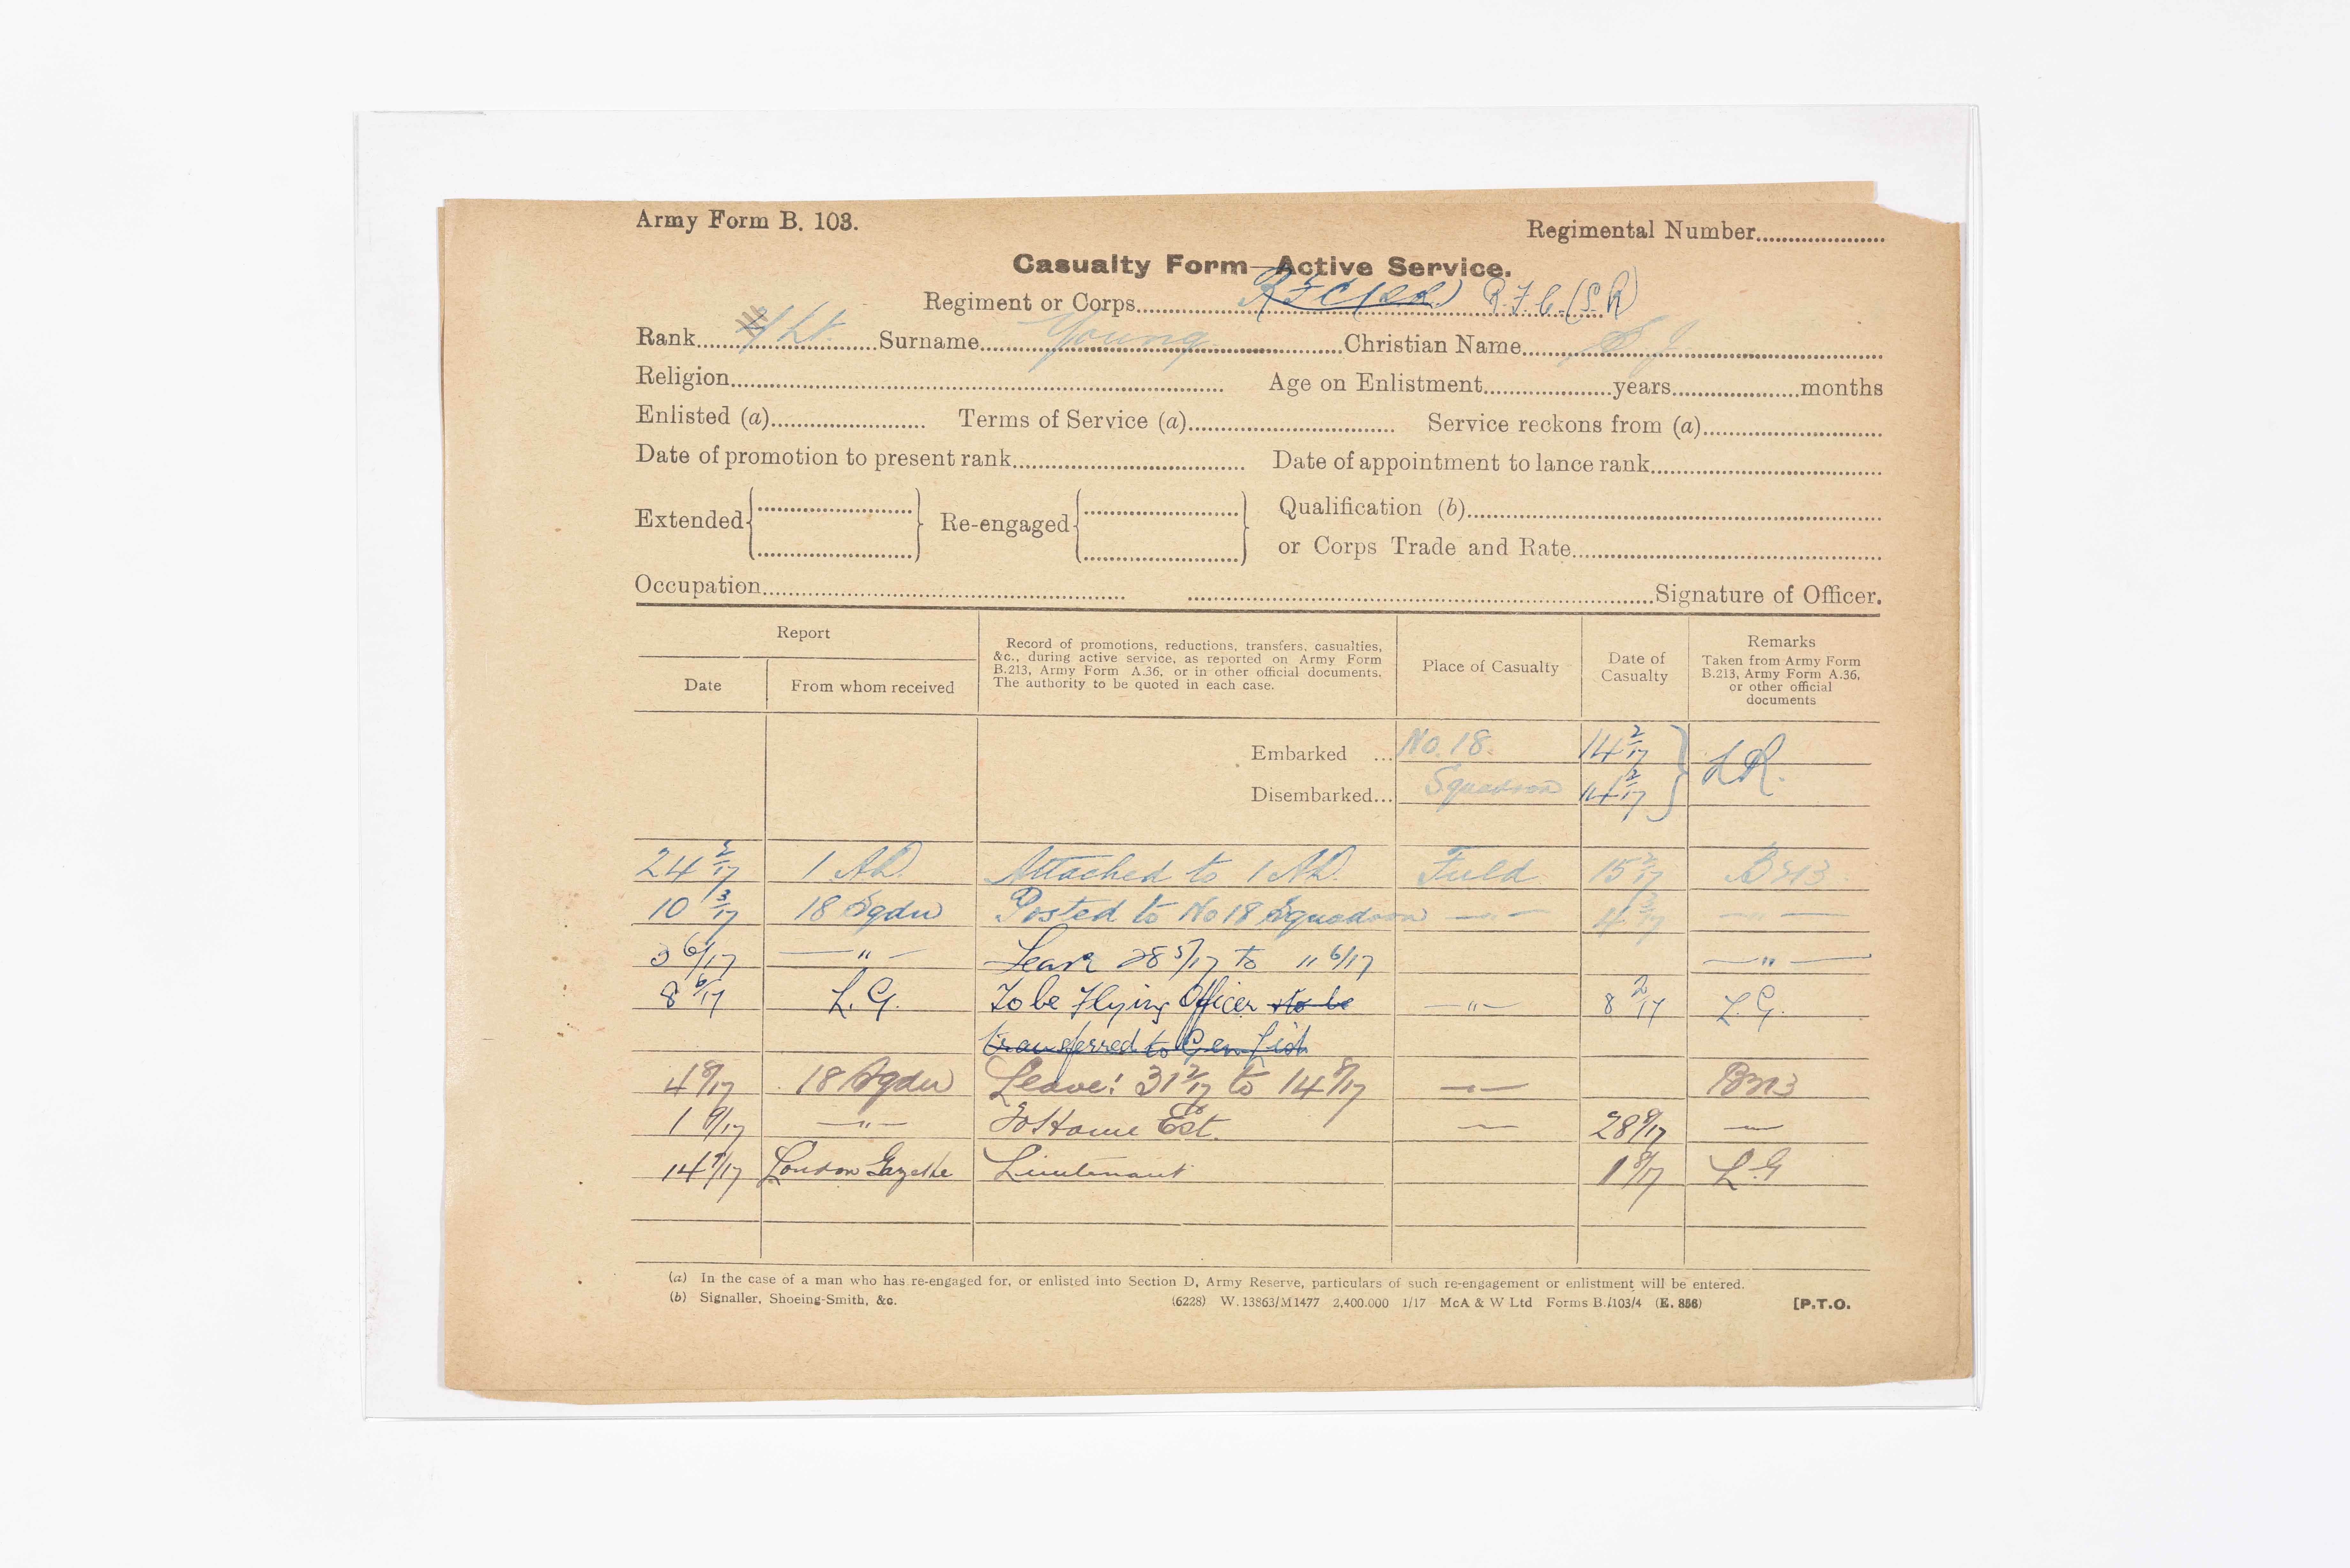 Army Form B. 103.
Regimental Number
Casualty Form—Active Service.
Regiment or Corps R.F.C.(S.R)
Rank 2/Lt. Surname Young Christian Name S J
Religion Age on Enlistment years months
Enlisted (a) Terms of Service (a) Service reckons from (a)
Date of promotion to present rank Date of appointment to lance rank
Extended Re-engaged Qualification (b)
or Corps Trade and Rate
Occupation Signature of Officer.
Report
Date
From whom received
Record of promotions, reductions, transfers, casualties,
&c., during active service, as reported on Army Form
B.213, Army Form A.36, or in other official documents.
The authority to be quoted in each case.
Place of Casualty
Date of
Casualty
Remarks
Taken from Army Form
B.213, Army Form A.36,
or other official
documents
Embarked ... No. 18. 14 2/17
Disembarked... Squadron 14 2/17
24 2/17 1 A.D. Attached to 1 A.D. Field 15 2/17 B213
10 3/17 18 Sqdn Posted to No 18 Squadron — " — 4 3/17 — " —
3 6/17 — " — Leave 28 5/17 to 11 6/17 — " —
8 6/17 L.G. To be Flying Officer to be — " — 8 2/17 L.G.
transferred to Gen List
4 8/17 18 Sqdn Leave: 31 7/17 to 14 8/17 — " — B213
1 9/17 — " — To Home Est. — 28 8/17 —
14 9/17 London Gazette Lieutenant 1 8/17 L.G
(a) In the case of a man who has re-engaged for, or enlisted into Section D, Army Reserve, particulars of such re-engagement or enlistment will be entered.
(b) Signaller, Shoeing-Smith, &c. (6228) W.13863/M1477 2,400.000 1/17 McA & W Ltd Forms B./103/4 (E. 856) [P.T.O.